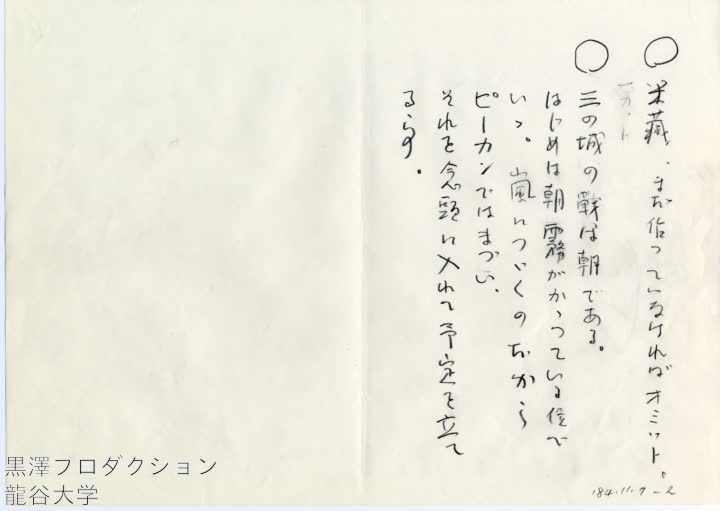 ○ 米藏、まだ作っていなければオミット。
一カット
○ 三の城の戰は朝である。
はじめは朝霧がかゝっている位で
いゝ。嵐につゞくのだから
ピーカンではまづい、
それを念頭に入れて予定を立て
る
'84.11.7 -2
黒澤フロダクション
龍谷大学